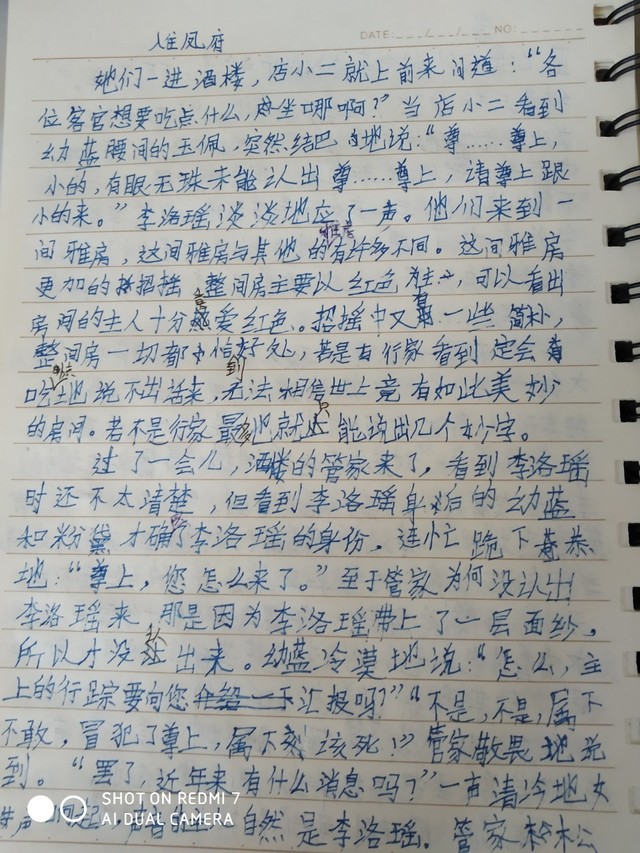 入住凤府
DATE: NO:
她们一进酒楼，店小二就上前来问道：“各
位客官想要吃点什么，坐哪啊？”当店小二看到
幼蓝腰间的玉佩，突然结巴的地说：“尊……尊上，
小的，有眼无珠未能认出尊……尊上，请尊上跟
小的来。”李洛瑶淡淡地应了一声。他们来到一
间雅房，这间雅房与其他雅房的有许多不同。这间雅房
更加的招摇 整间房主要以红色为主，可以看出
房间的主人十分喜爱红色。招摇中又有一些简朴，
整间房一切都恰好处，若是有行家看到定会
吃惊地说不出话来，无法相信世上竟有如此美妙
的房间。若不是行家最多也就只能说出几个妙字。
过了一会儿，酒楼的管家来了，看到李洛瑶
时还不太清楚，但看到李洛瑶身后的幼蓝
和粉黛才确定了李洛瑶的身份，连忙跪下恭
地：“尊上，您怎么来了。”至于管家为何没认出
李洛瑶来 那是因为李洛瑶带上了一层面纱，
所以才没认出来。幼蓝冷漠地说：“怎么，主
上的行踪要向您汇报吗？”“不是，不是，属下
不敢，冒犯了尊上，属下刻该死！”管家敬畏地说
到。“罢了，近年来有什么消息吗？”一声清冷地女
声响起，自然是李洛瑶。管家松
SHOT ON REDMI 7
AI DUAL CAMERA